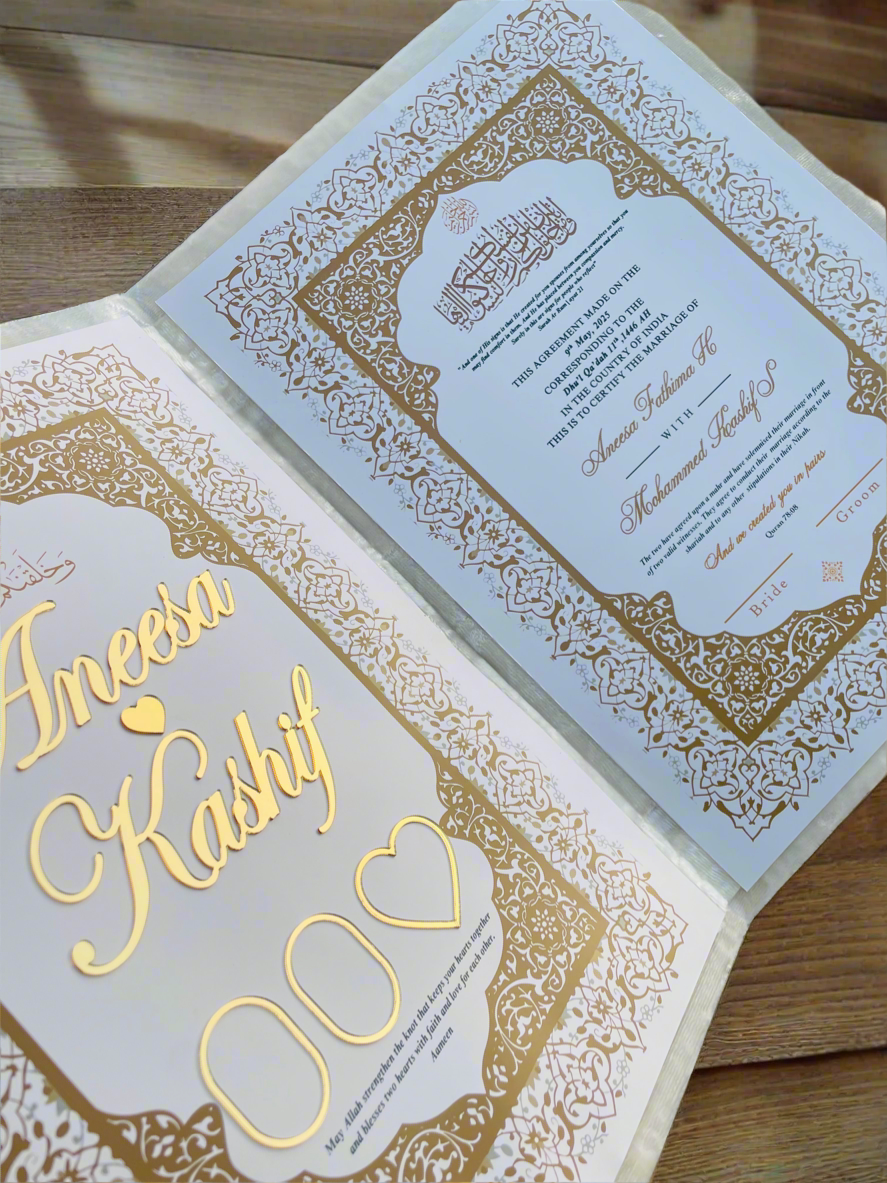 Aneesa
Kashif
May Allah strengthen the knot that keeps your hearts together
and blesses two hearts with faith and love for each other.
Aameen
"And one of His signs is that He created for you spouses from among yourselves so that you
may find comfort in them. And He has placed between you compassion and mercy.
Surely in this are signs for people who reflect"
Surah Ar Rum ayat 21
THIS AGREEMENT MADE ON THE
9th May, 2025
CORRESPONDING TO THE
Dhu'l Qa'dah 11th,1446 AH
IN THE COUNTRY OF INDIA
THIS IS TO CERTIFY THE MARRIAGE OF
Aneesa Fathima H
WITH
Mohammed Kashif S
The two have agreed upon a mahr and have solemnised their marriage in front
of two valid witnesses. They agree to conduct their marriage according to the
shariah and to any other stipulations in their Nikah.
And we created you in pairs
Quran 78:08
Bride
Groom